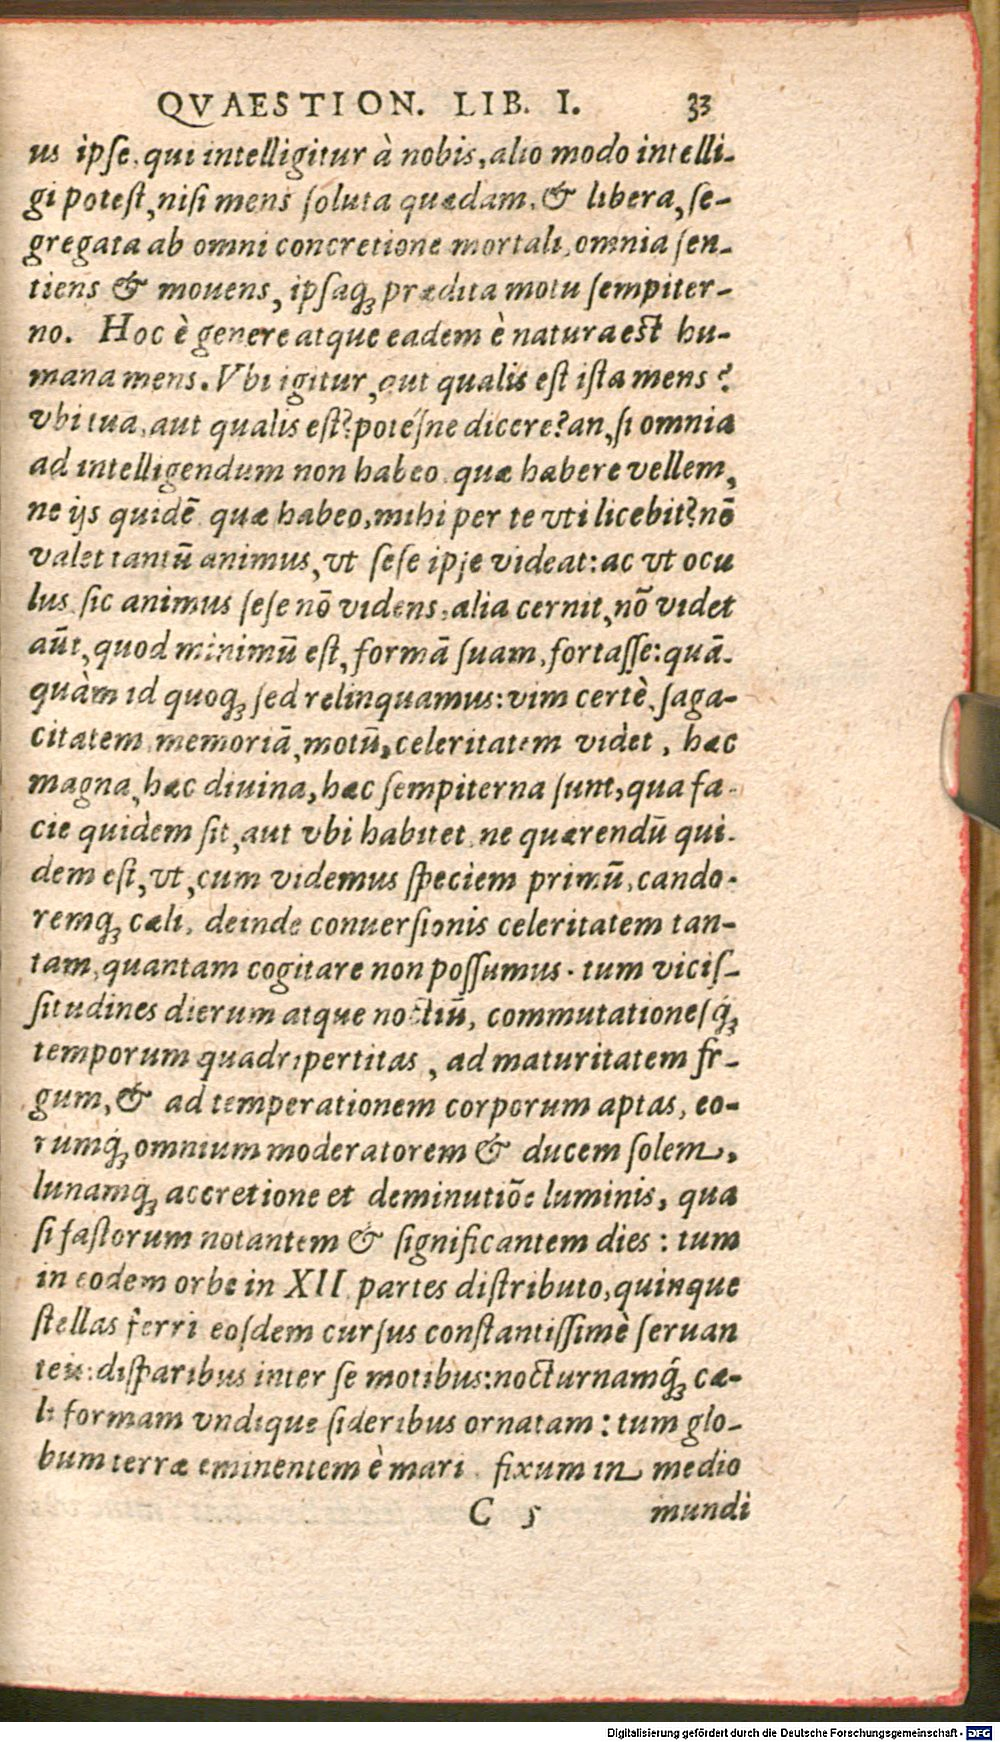 QVAESTION. LIB. I. 33
us ipſe, qui intelligitur à nobis, alio modo intelli-
gi poteſt, niſi mens ſoluta quædam, & libera, ſe-
gregata ab omni concretione mortali, omnia ſen-
tiens & mouens, ipſaq; prædita motu ſempiter-
no. Hoc è genere atque eadem è natura est hu-
mana mens. Vbi igitur, aut qualis eſt iſta mens?
vbi tua, aut qualis eſt? potéſne dicere? an, ſi omnia
ad intelligendum non habeo quæ habere vellem,
ne ijs quidē quæ habeo, mihi per te vti licebit? nō
valet tantū animus, vt ſeſe ipſe videat: ac vt ocu
lus ſic animus ſeſe nō videns, alia cernit, nō videt
aūt, quod minimū eſt, formā ſuam, fortaſſe: quā-
quàm id quoq; ſed relinquamus: vim certè, ſaga-
citatem, memoriā, motū, celeritatem videt, hæc
magna, hæc diuina, hæc ſempiterna ſunt, qua fa-
cie quidem ſit, aut vbi habitet, ne quærendū qui-
dem eſt, vt, cum videmus ſpeciem primū, cando-
remq; cæli, deinde conuerſionis celeritatem tan-
tam, quantam cogitare non poſſumus. tum viciſ-
ſitudines dierum atque noctiū, commutationeſq́;
temporum quadripertitas, ad maturitatem fr-
gum, & ad temperationem corporum aptas, eo-
rumq́; omnium moderatorem & ducem ſolem,
lunamq́; accretione et deminutiōe luminis, qua
ſi faſtorum notantem & ſignificantem dies: tum
in eodem orbe in XII partes diſtributo, quinque
ſtellas ferri eoſdem curſus conſtantiſſimè ſeruan
teis: diſparibus inter ſe motibus: nocturnamq́; cæ-
li formam vndique ſideribus ornatam: tum glo-
bum terræ eminentem è mari fixum in medio
C 5 mundi
Digitalisierung gefördert durch die Deutsche Forschungsgemeinschaft - DFG